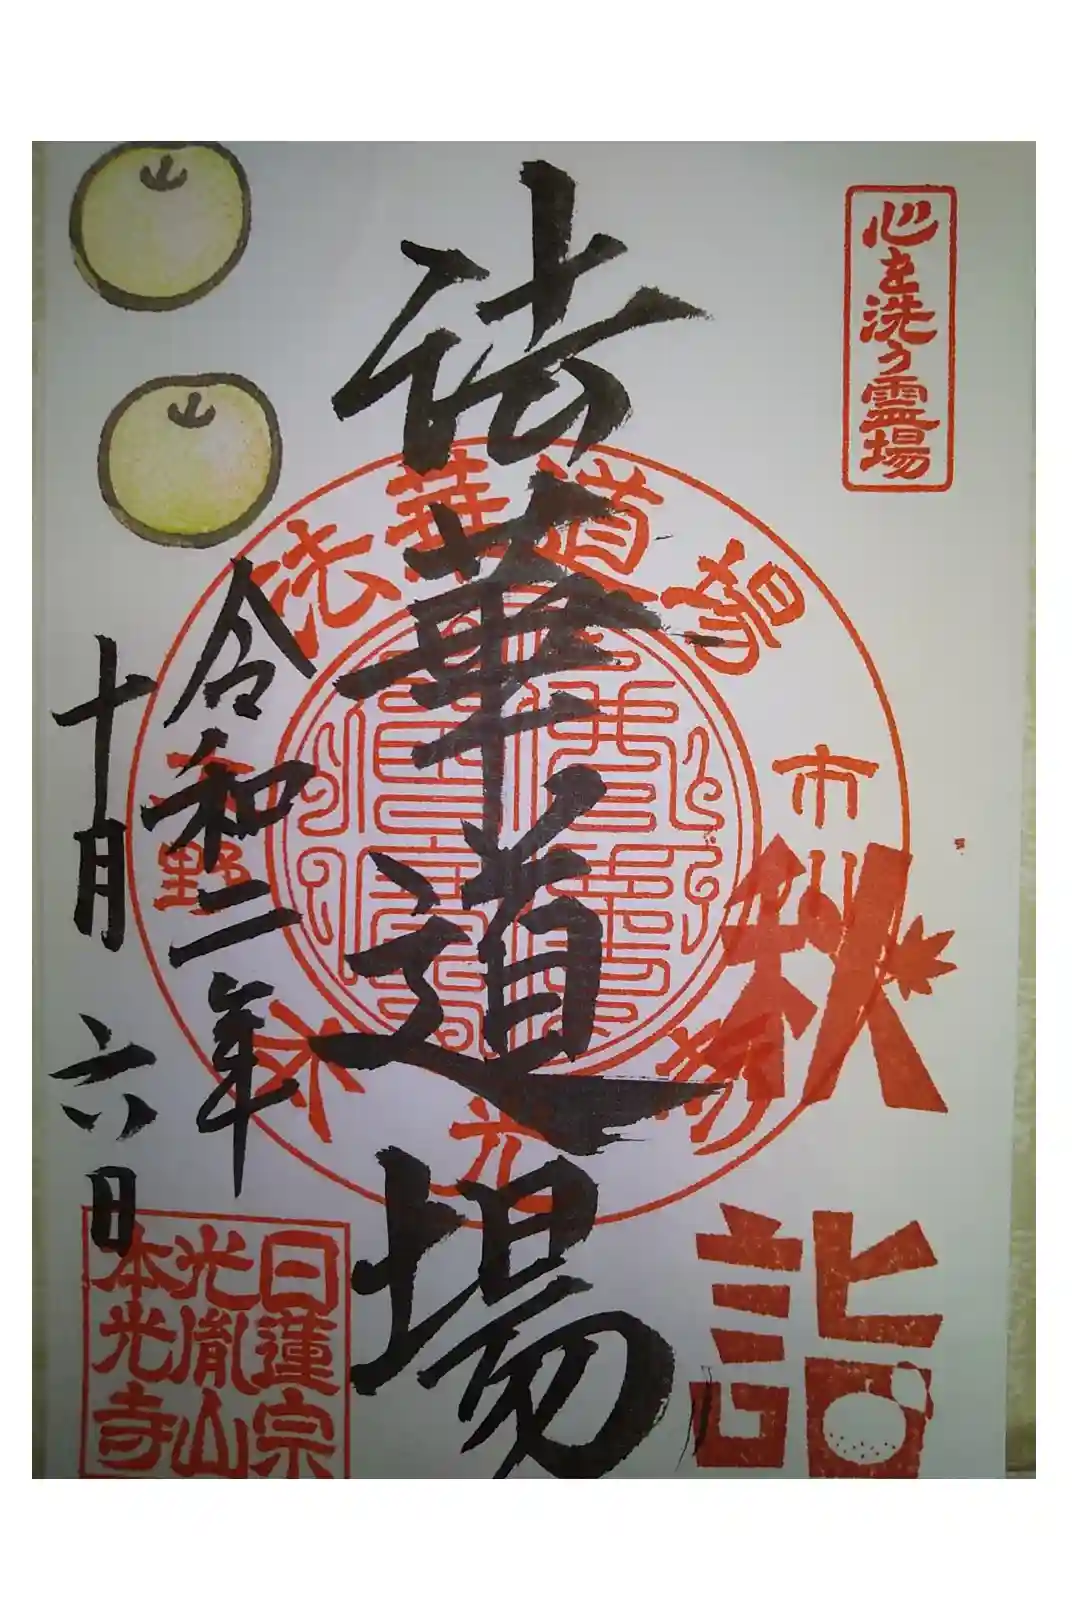 心を洗う霊場
法華道場
法華道場
市川
大野
秋
詣
令和二年
十月六日
日蓮宗
光胤山
本光寺